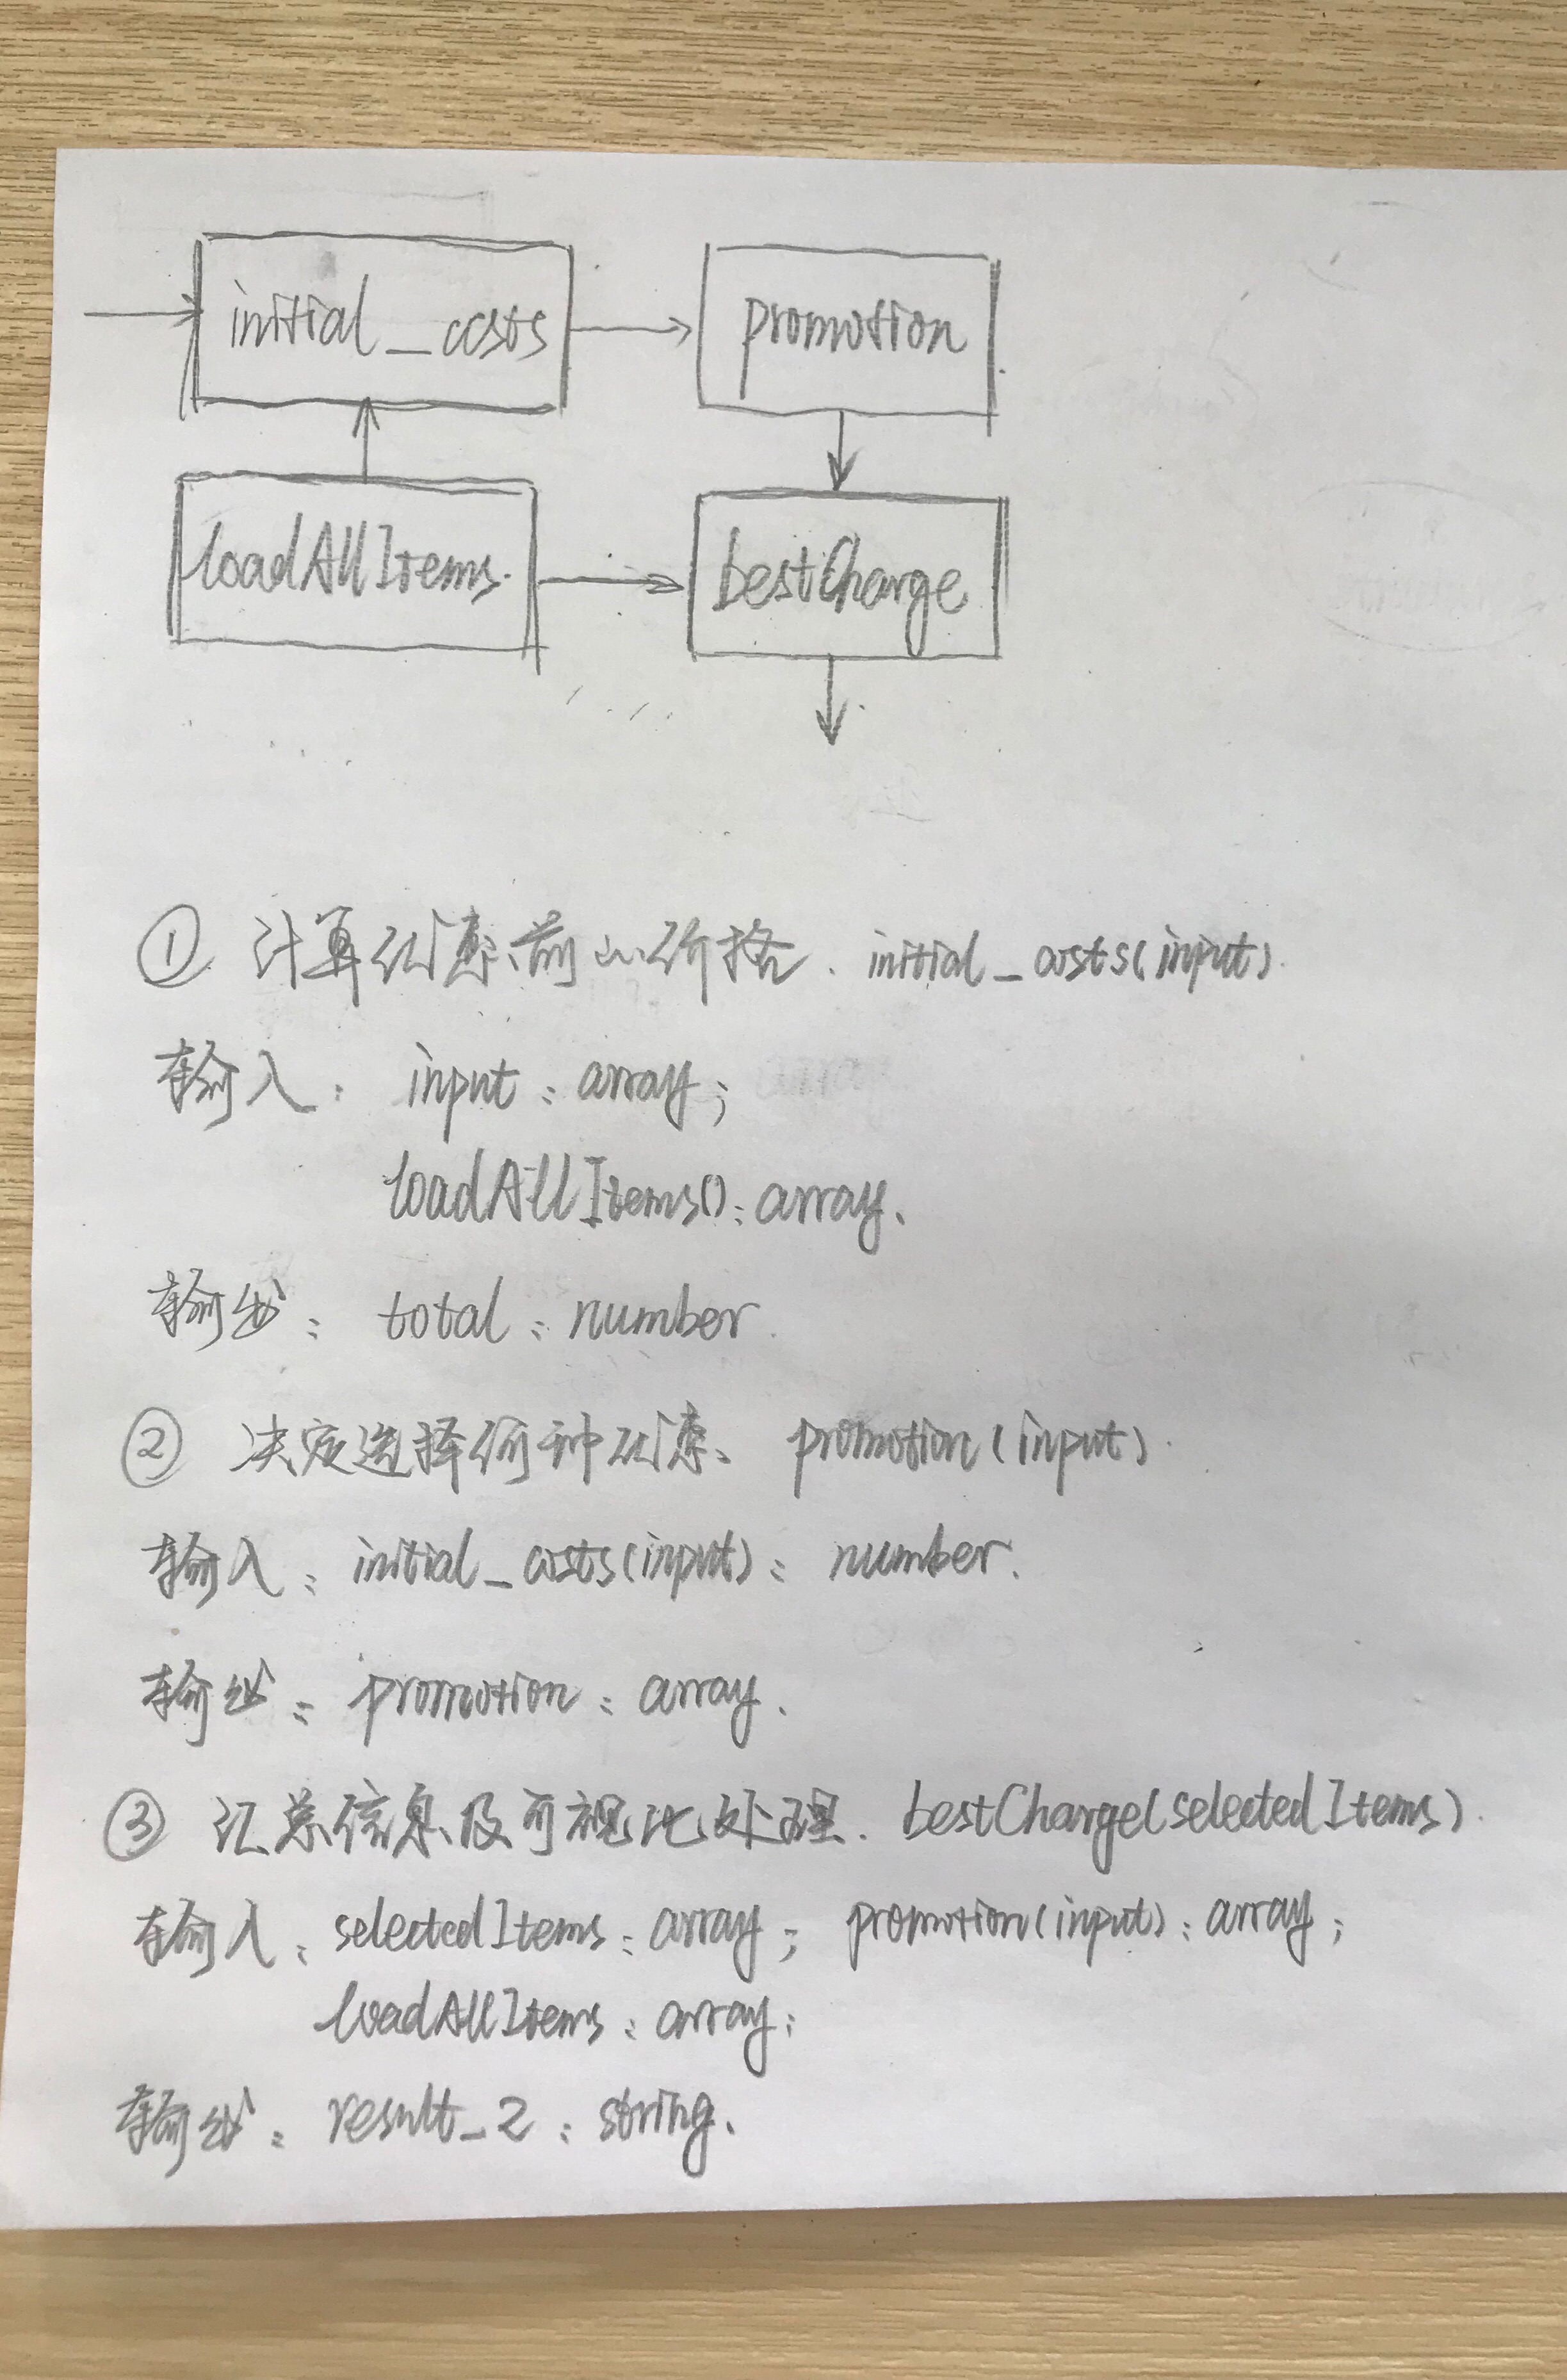 initial_costs
promotion
loadAllItems.
bestCharge
① 计算优惠前的价格. initial_costs(input).
输入: input: array;
loadAllItems(): array.
输出: total: number.
② 决定选择何种优惠. promotion(input).
输入: initial_costs(input): number.
输出: promotion: array.
③ 汇总信息及可视化处理. bestCharge(selectedItems).
输入: selectedItems: array; promotion(input): array;
loadAllItems: array;
输出: result_2: string.